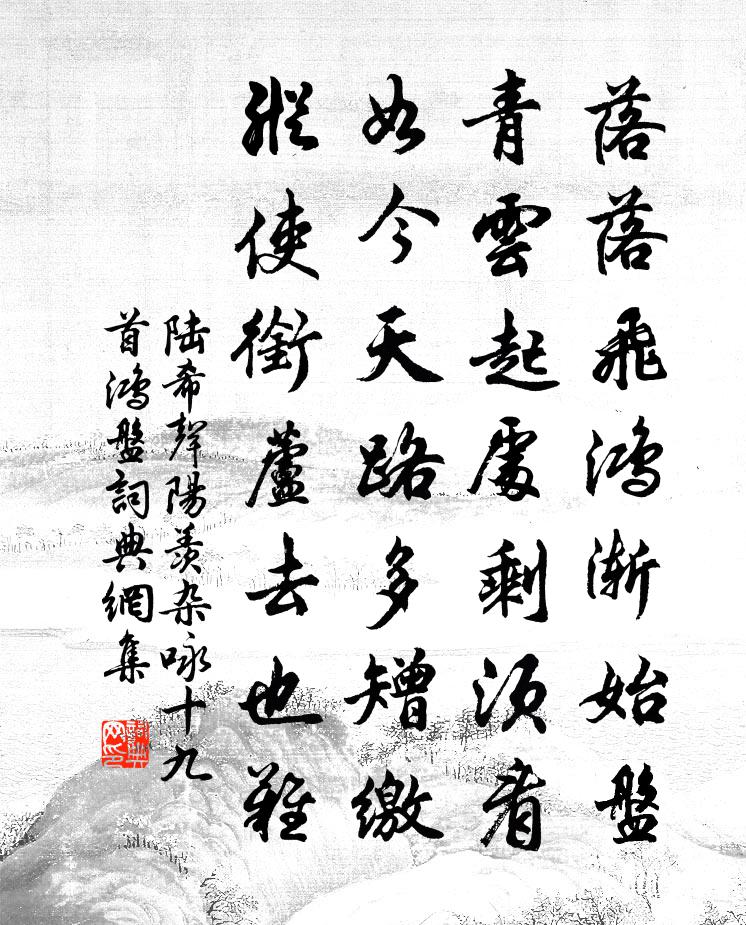 落落飛鴻漸始盤
青雲起處剩須看
如今天路多矰繳
縱使銜蘆去也難
陆希聲陽羨杂咏十九
首鴻盤詞典網集